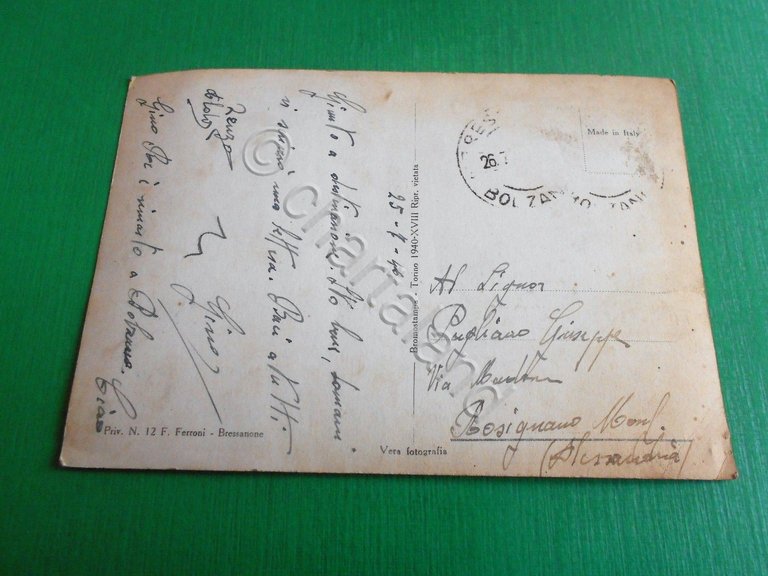 25-7-40
Giunto a destinazione. Sto bene, domani
vi scriverò una lettera. Baci a tutti.
Gino
Renzo
Gino Poi è rimasto a Bolzano. Ciao
Priv. N. 12 F. Ferroni - Bressanone
Bromostampa - Torino 1940-XVIII Ripr. vietata
Vera fotografia
Made in Italy
26.7
BOLZANO
Al Signor
Pugliano Giuseppe
Via
Rosignano Monf.
(Alessandria)
© chartaland